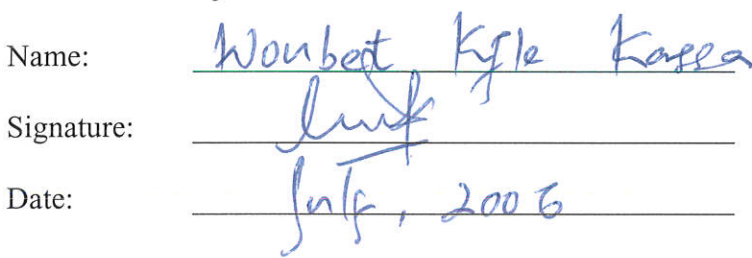 Name: Wonbest Kyle Kassa
Signature:
Date: July, 2006